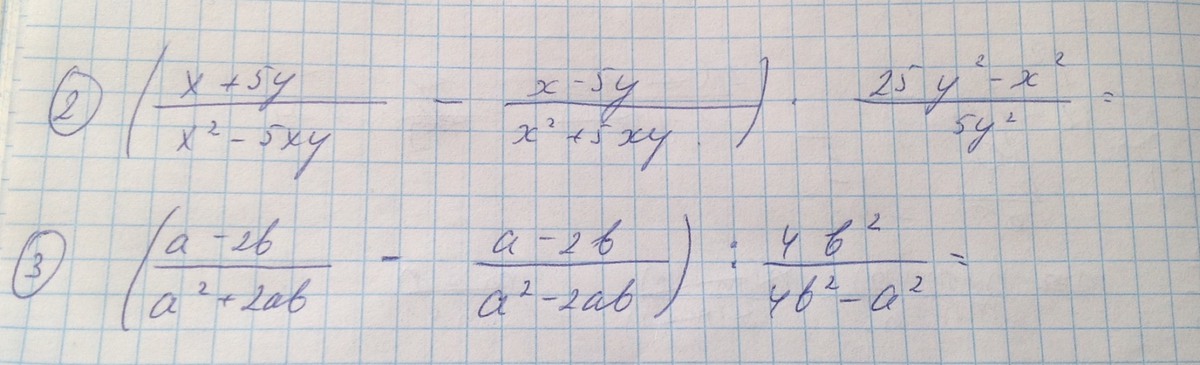 ② ( (x + 5y)/(x² - 5xy) - (x - 5y)/(x² + 5xy) ) · (25y² - x²)/(5y²) =
③ ( (a - 2b)/(a² + 2ab) - (a - 2b)/(a² - 2ab) ) : (4b²)/(4b² - a²) =